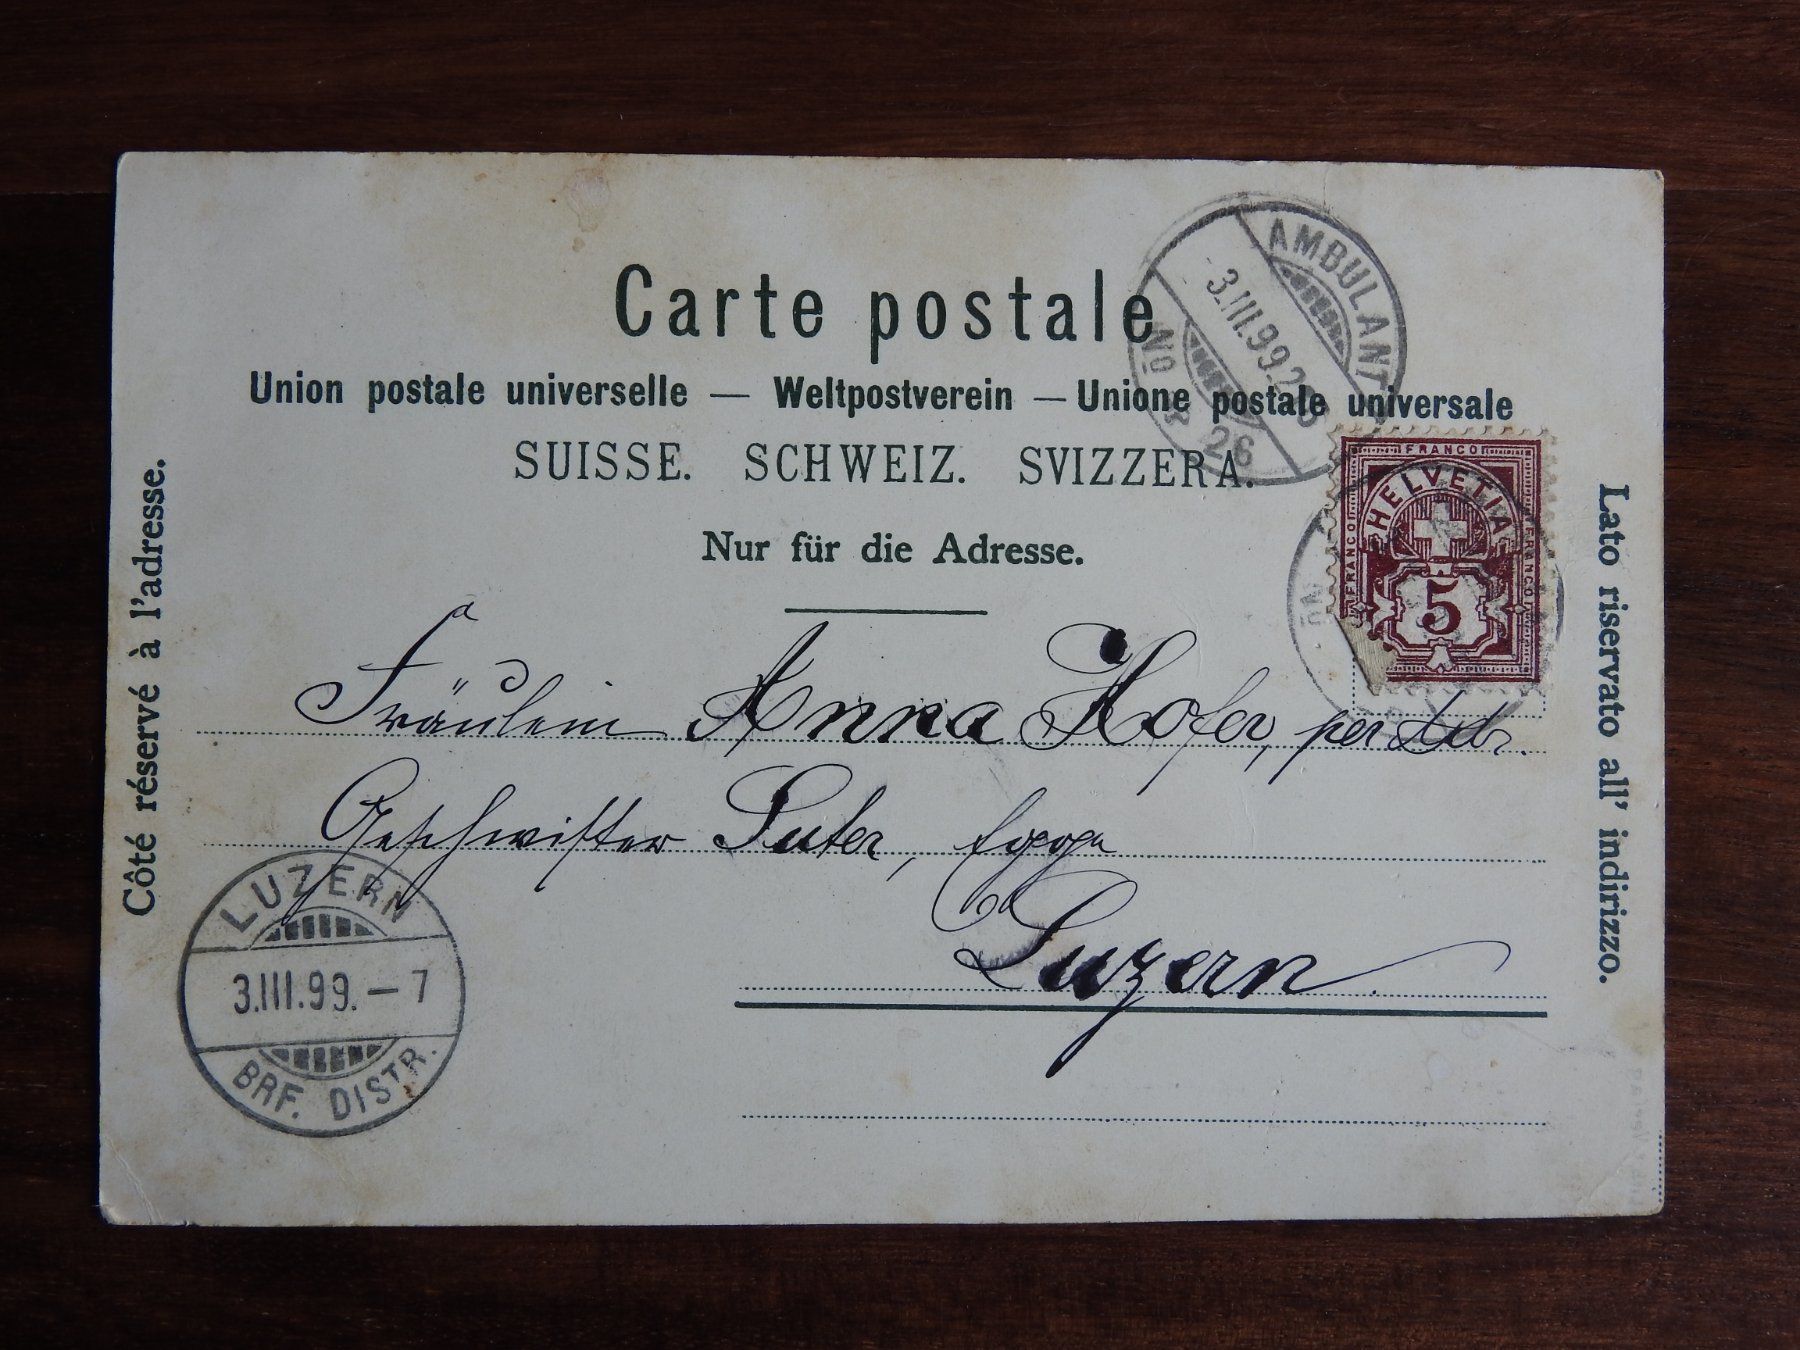 Carte postale
Union postale universelle — Weltpostverein — Unione postale universale
SUISSE. SCHWEIZ. SVIZZERA.
Nur für die Adresse.
Côté réservé à l'adresse.
Lato riservato all' indirizzo.
AMBULANT
3.III.99.
No 26
FRANCO
HELVETIA
FRANCO
FRANCO
5
Fräulein Anna Hofer, per Adr.
Geschwister Suter, Egge
Luzern.
LUZERN
3.III.99. – 7
BRF. DISTR.